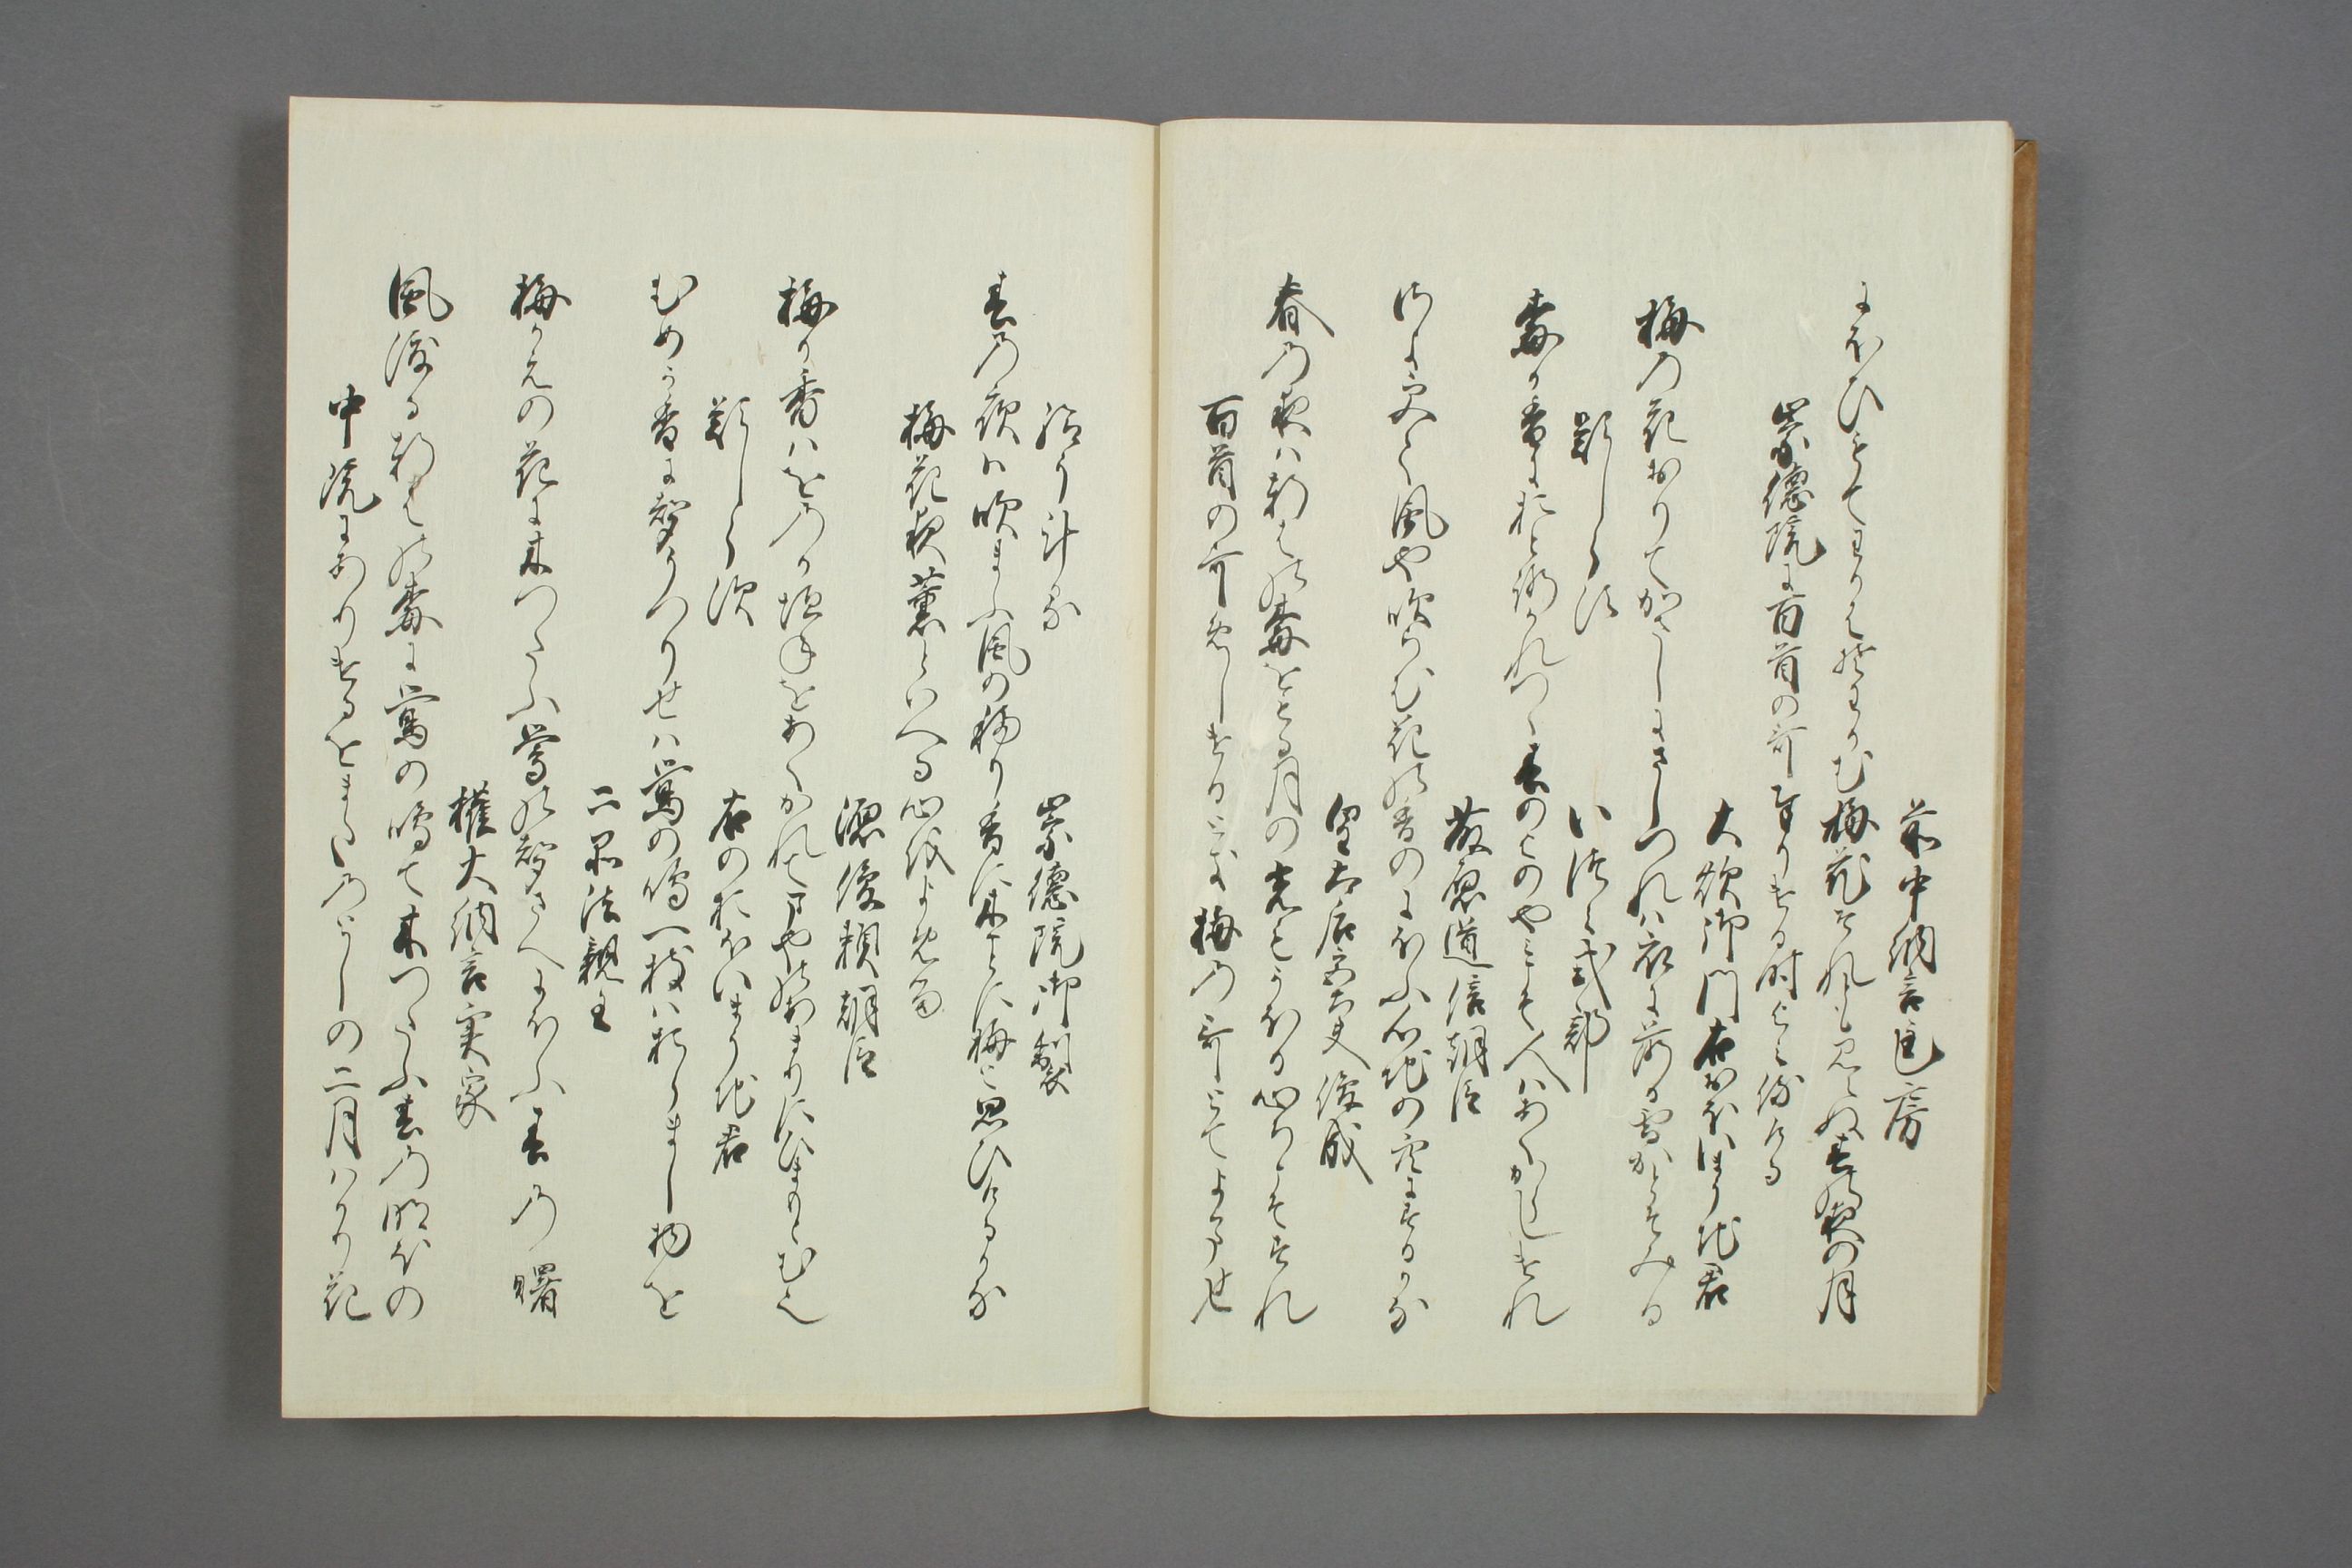 前中納言匡房
にほひもてわかはそわかむ梅花それとも見えぬ春の夜の月
崇徳院に百首の哥奉りける時よみ侍ける
大炊御門右おほいまうち君
梅の花おりてかさしにさしつれは衣に落る雪かとそみる
題しらす
いつみ式部
梅か香におとろかれつゝ春のよのやみこそ人はあくからしけれ
藤原道信朝臣
さよ更て風や吹らむ花の香のにほふ心地の空にするかな
皇太后宮大夫俊成
春の夜は軒はの梅をもる月の光もかほる心ちこそすれ
百首の哥めしける時梅の哥とてよませ
給うける
崇徳院御製
春の夜は吹まふ風の移り香に木ことに梅と思ひけるかな
梅花夜薫といへる心をよめる
源俊頼朝臣
梅か香はをのか垣ねをあくかれてまやのあまりにひまもとむ也
題しらす
右のおほいまうち君
むめか香に声うつりせは鶯の鳴一枝はおらまし物を
二品法親王
梅かえの花に木つたふ鶯の声さへにほふ春の曙
権大納言実家
風渡る軒はの梅に鶯の鳴て木つたふ春の明ほの
中院にありけるをまたのとしの二月はかり花